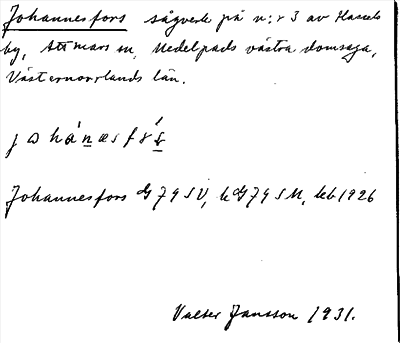 Johannesfors sågverk på n:r 3 av Hassels
by, Attmars sn, Medelpads västra domsaga,
Västernorrlands län.
Johannesfors G 79 SV, G 79 SM, 1926
Valter Jansson 1931.